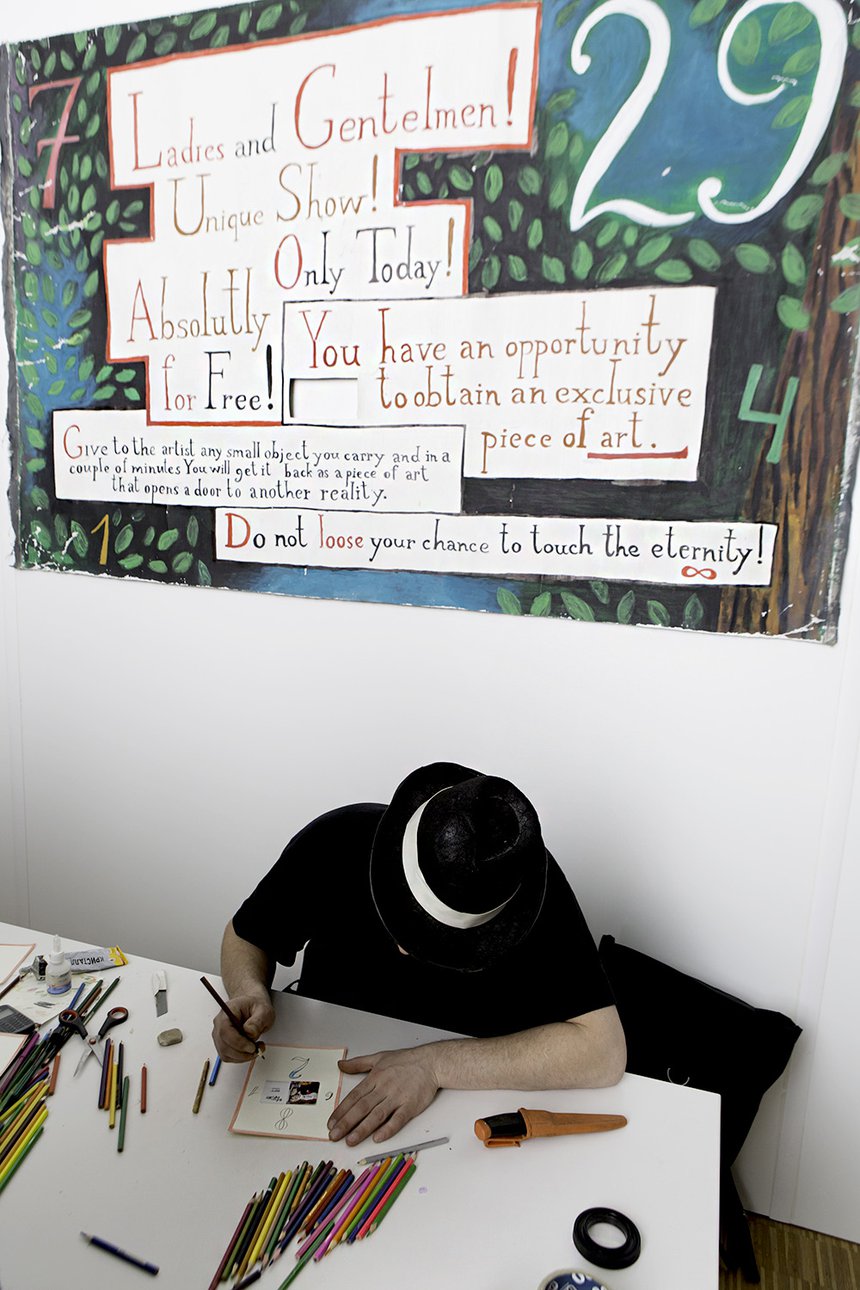 7
29
Ladies and Gentelmen!
Unique Show!
Only Today!
Absolutly
for Free!
You have an opportunity
to obtain an exclusive
piece of art.
4
Give to the artist any small object you carry and in a
couple of minutes You will get it back as a piece of art
that opens a door to another reality.
1
Do not loose your chance to touch the eternity!
∞
КРИСТАЛЛ
2
8